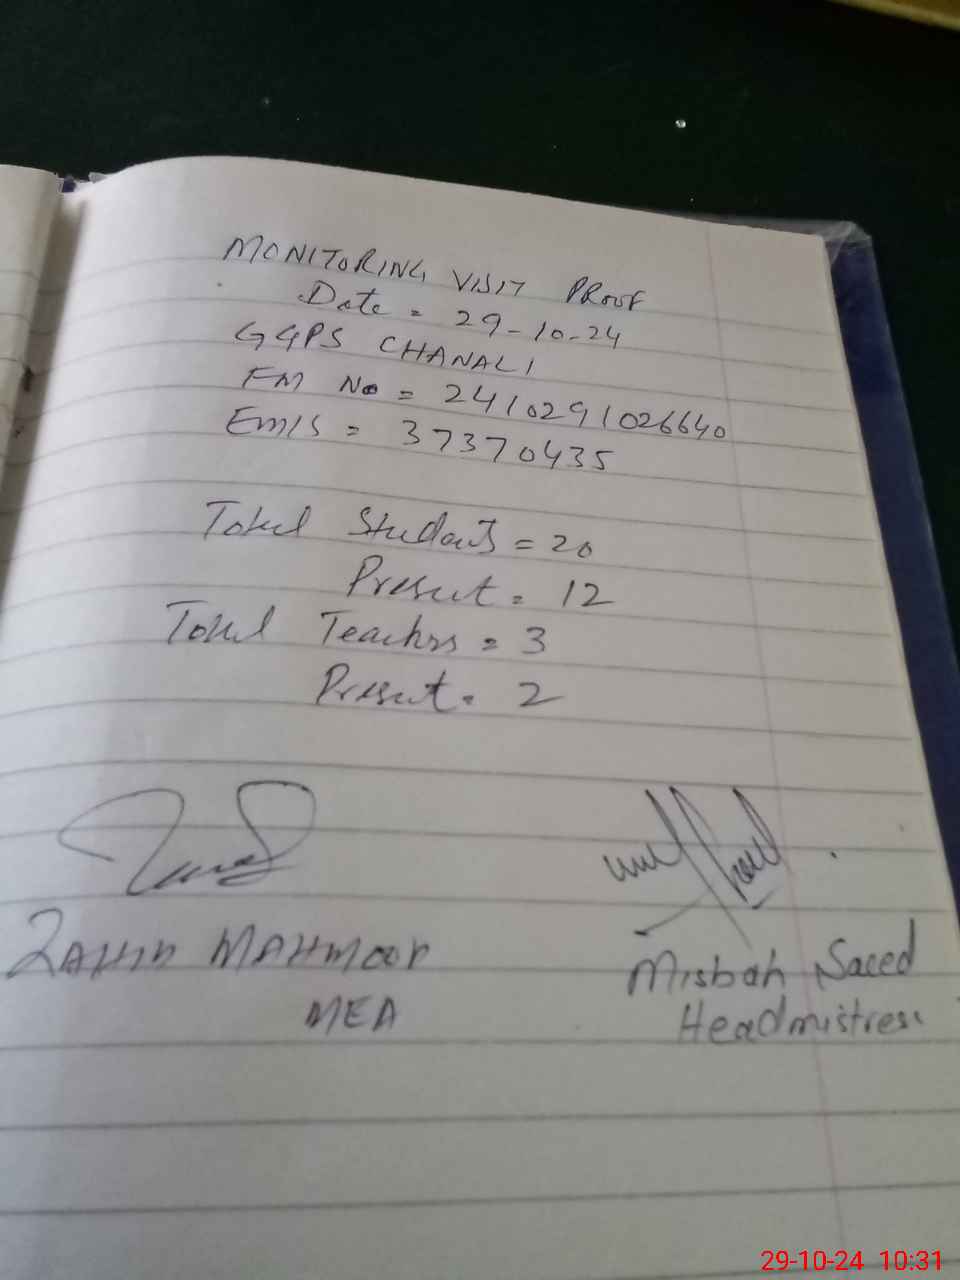 MONITORING VISIT PROOF
Date = 29-10-24
GGPS CHANALI
FM No = 2410291026640
EMIS = 37370435
Total Students = 20
Present = 12
Total Teachers = 3
Present = 2
ZAHID MAHMOOD
MEA
Misbah Saeed
Headmistress
29-10-24 10:31